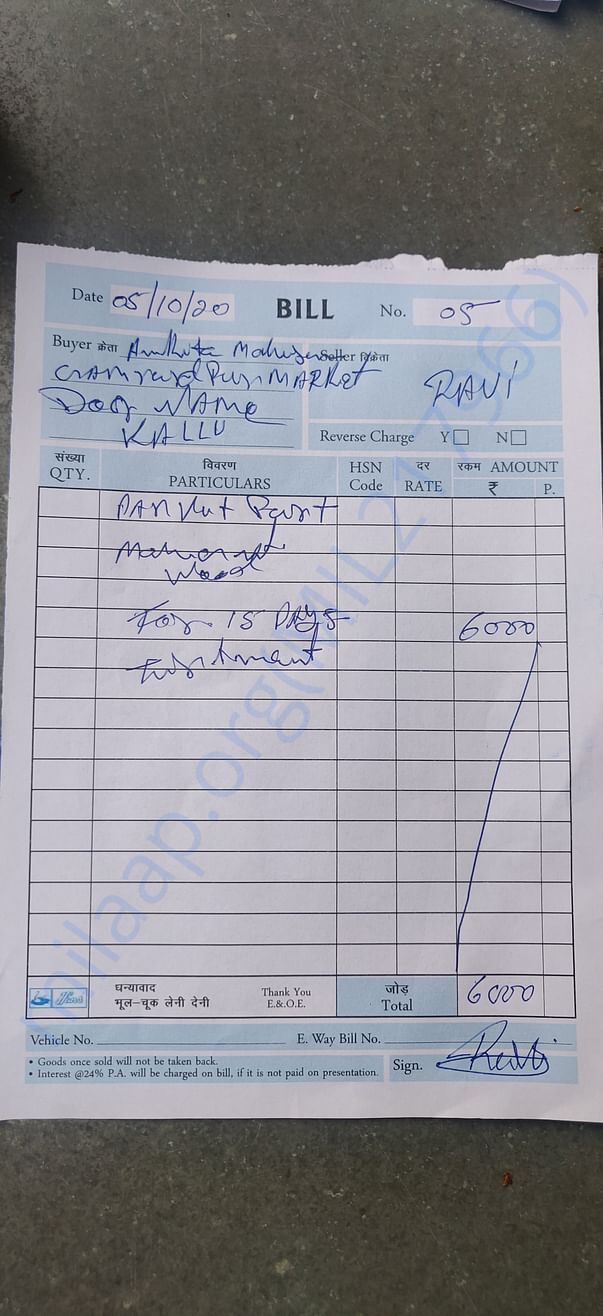 Date 05/10/20 BILL No. 05
Buyer क्रेता Seller विक्रेता
MARKET RAVI
Dog NAME
KALLU
Reverse Charge Y N
संख्या विवरण HSN दर रकम AMOUNT
QTY. PARTICULARS Code RATE ₹ P.
For 15 DAYS 6000
धन्यवाद Thank You जोड़ 6000
भूल-चूक लेनी देनी E.&O.E. Total
Vehicle No. E. Way Bill No.
• Goods once sold will not be taken back.
• Interest @24% P.A. will be charged on bill, if it is not paid on presentation. Sign.
milaap.org(MIL217966)